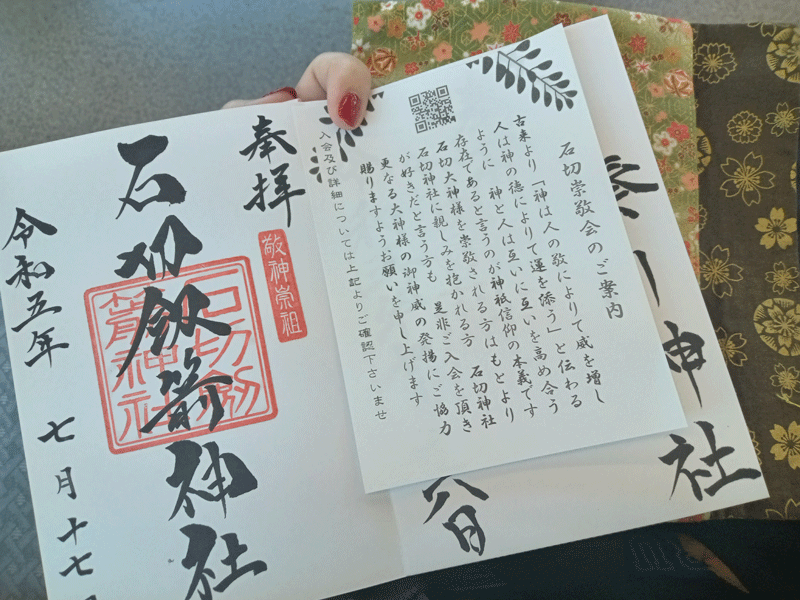 奉拝
敬神崇祖
石切劔箭神社
石切劔
箭神社
令和五年
七月十七
石切崇敬会のご案内
古来より「神は人の敬によりて威を増し
人は神の徳によりて運を添う」と伝わる
ように 神と人は互いに互いを高め合う
存在であると言うのが神祇信仰の本義です
石切大神様を崇敬される方はもとより
石切神社に親しみを抱かれる方 石切神社
が好きだと言う方も 是非ご入会を頂き
更なる大神様の御神威の発揚にご協力
賜りますようお願いを申し上げます
入会及び詳細については上記よりご確認下さいませ
神社
日